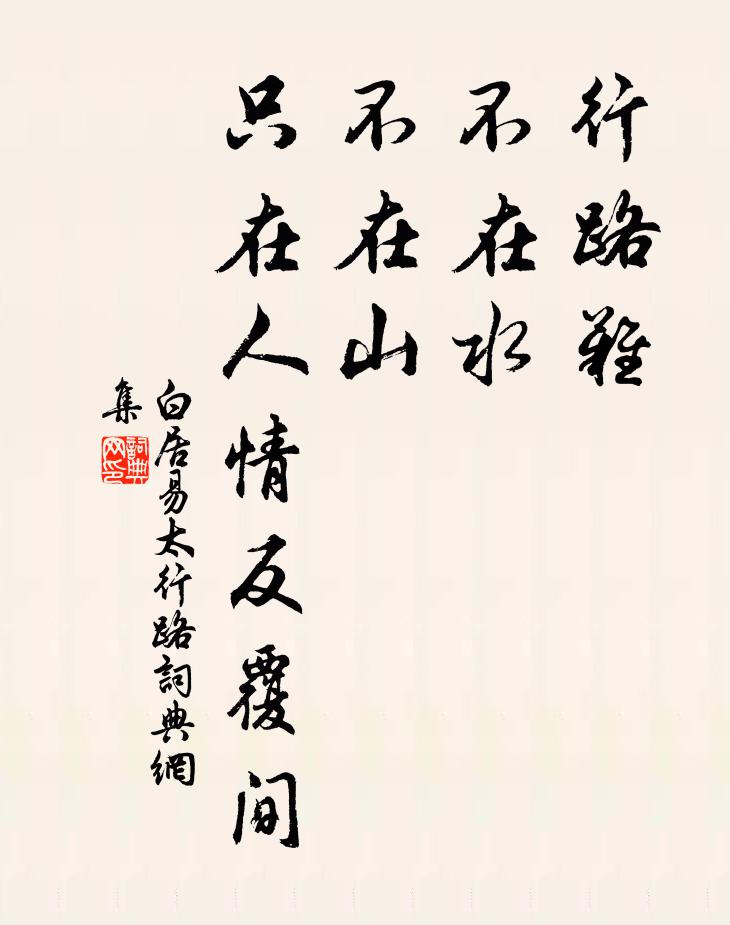 行路難
不在水
不在山
只在人情反覆間
白居易太行路詞典網
集
詞典
网印